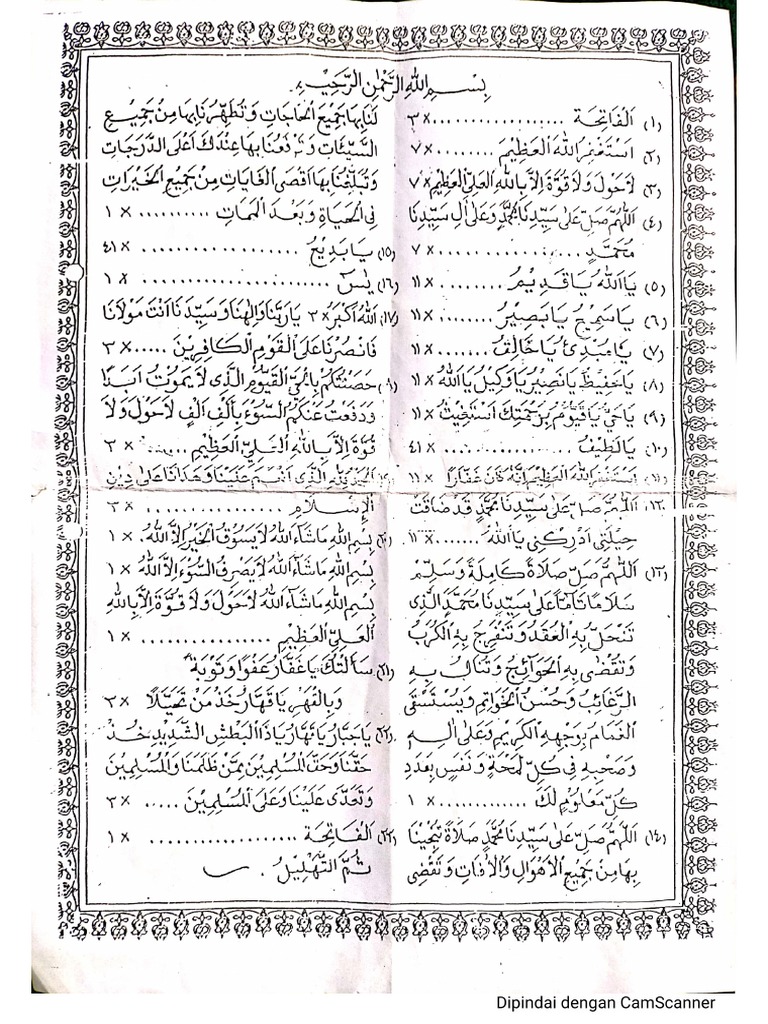 بِسْمِ اللهِ الرَّحْمٰنِ الرَّحِيْمِ.
(١) اَلْفَاتِحَة .................. ×٣
(٢) اَسْتَغْفِرُ اللهَ الْعَظِيْمَ ......... ×٧
(٣) لَاحَوْلَ وَلَا قُوَّةَ اِلَّا بِاللهِ الْعَلِيِّ الْعَظِيْمِ ×٧
(٤) اَللّٰهُمَّ صَلِّ عَلٰى سَيِّدِنَا مُحَمَّدٍ وَعَلٰى اٰلِ سَيِّدِنَا
مُحَمَّدٍ .................. ×٧
(٥) يَا اَللهُ يَا قَدِيْمُ ............ ×١١
(٦) يَا سَمِيْعُ يَا بَصِيْرُ .......... ×١١
(٧) يَا مُبْدِئُ يَا خَالِقُ .......... ×١١
(٨) يَا حَفِيْظُ يَا نَصِيْرُ يَا وَكِيْلُ يَا اَللهُ ×١١
(٩) يَا حَيُّ يَا قَيُّوْمُ بِرَحْمَتِكَ اَسْتَغِيْثُ ×١١
(١٠) يَا لَطِيْفُ .................. ×٤١
(١١) اَسْتَغْفِرُ اللهَ الْعَظِيْمَ اِنَّهُ كَانَ غَفَّارًا ×١١
(١٢) اَللّٰهُمَّ صَلِّ عَلٰى سَيِّدِنَا مُحَمَّدٍ قَدْ ضَاقَتْ
حِيْلَتِيْ اَدْرِكْنِيْ يَا اَللهُ ........ ×١١
(١٣) اَللّٰهُمَّ صَلِّ صَلَاةً كَامِلَةً وَسَلِّمْ
سَلَامًا تَامًّا عَلٰى سَيِّدِنَا مُحَمَّدِ الَّذِى
تَنْحَلُّ بِهِ الْعُقَدُ وَتَنْفَرِجُ بِهِ الْكُرَبُ
وَتُقْضٰى بِهِ الْحَوَائِجُ وَتُنَالُ بِهِ
الرَّغَائِبُ وَحُسْنُ الْخَوَاتِمِ وَيُسْتَسْقَى
الْغَمَامُ بِوَجْهِهِ الْكَرِيْمِ وَعَلٰى اٰلِهِ
وَصَحْبِهِ فِى كُلِّ لَمْحَةٍ وَنَفَسٍ بِعَدَدِ
كُلِّ مَعْلُوْمٍ لَكَ ............ ×١
(١٤) اَللّٰهُمَّ صَلِّ عَلٰى سَيِّدِنَا مُحَمَّدٍ صَلَاةً تُنْجِيْنَا
بِهَا مِنْ جَمِيْعِ الْاَهْوَالِ وَالْاٰفَاتِ وَتَقْضِى
لَنَا بِهَا جَمِيْعَ الْحَاجَاتِ وَتُطَهِّرُنَا بِهَا مِنْ جَمِيْعِ
السَّيِّئَاتِ وَتَرْفَعُنَا بِهَا عِنْدَكَ اَعْلَى الدَّرَجَاتِ
وَتُبَلِّغُنَا بِهَا اَقْصَى الْغَايَاتِ مِنْ جَمِيْعِ الْخَيْرَاتِ
فِى الْحَيَاةِ وَبَعْدَ الْمَمَاتِ .......... ×١
(١٥) يَا بَدِيْعُ .................. ×٤١
(١٦) يٰسٓ .................. ×١
(١٧) اَللهُ اَكْبَرُ ×٣ يَا رَبَّنَا وَاِلٰهَنَا وَسَيِّدَنَا اَنْتَ مَوْلَانَا
فَانْصُرْنَا عَلَى الْقَوْمِ الْكَافِرِيْنَ ..... ×٣
(١٨) حَصَّنْتُكُمْ بِالْحَيِّ الْقَيُّوْمِ الَّذِى لَا يَمُوْتُ اَبَدًا
وَدَفَعْتُ عَنْكُمُ السُّوْءَ بِاَلْفِ اَلْفِ لَاحَوْلَ وَلَا
قُوَّةَ اِلَّا بِاللهِ الْعَلِيِّ الْعَظِيْمِ ....... ×٣
(١٩) اَلْحَمْدُ لِلّٰهِ الَّذِى اَنْعَمَ عَلَيْنَا وَهَدَانَا عَلٰى دِيْنِ
الْاِسْلَامِ .................. ×٣
(٢٠) بِسْمِ اللهِ مَا شَاءَ اللهُ لَا يَسُوْقُ الْخَيْرَ اِلَّا اللهُ.
بِسْمِ اللهِ مَا شَاءَ اللهُ لَا يَصْرِفُ السُّوْءَ اِلَّا اللهُ ×١
بِسْمِ اللهِ مَا شَاءَ اللهُ لَاحَوْلَ وَلَا قُوَّةَ اِلَّا بِاللهِ
الْعَلِيِّ الْعَظِيْمِ ................ ×١
(٢١) سَأَلْتُكَ يَا غَفَّارُ عَفْوًا وَتَوْبَةً
وَبِالْقَهْرِ يَا قَهَّارُ خُذْ مَنْ تَحَيَّلَا ×٣
(٢٢) يَا جَبَّارُ يَا قَهَّارُ يَا ذَا الْبَطْشِ الشَّدِيْدِ خُذْ
حَقَّنَا وَحَقَّ الْمُسْلِمِيْنَ مِمَّنْ ظَلَمَنَا وَالْمُسْلِمِيْنَ
وَتَعَدَّى عَلَيْنَا وَعَلَى الْمُسْلِمِيْنَ ..... ×٣
(٢٣) اَلْفَاتِحَة .................. ×١
ثُمَّ التَّهْلِيْلُ.
Dipindai dengan CamScanner